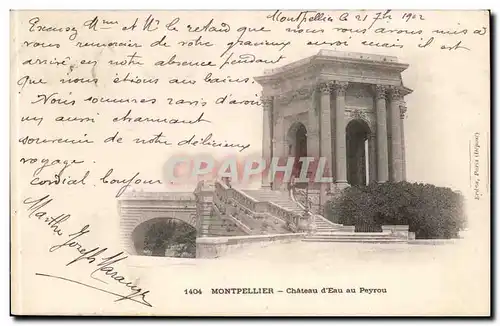 Montpellier le 21 7bre 1902
Excusez Mme et Mr le retard que nous avons mis à
vous remercier de votre gracieux envoi mais il est
arrivé en notre absence pendant
que nous étions aux bains.
Nous sommes ravis d'avoir
un aussi charmant
souvenir de notre délicieux
voyage.
Cordial bonjour
Marthe Joseph
CPHIPA.COM
1404 MONTPELLIER - Château d'Eau au Peyrou